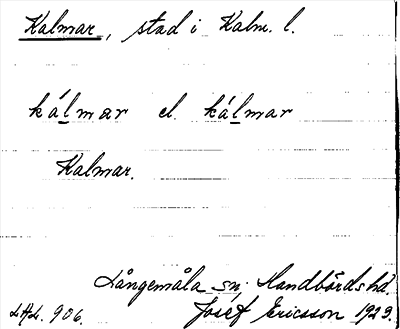 Kalmar, stad i Kalm. l.
kálmar el. kálmar
Kalmar.
Långemåla sn; Handbörds hd.
L.A.L. 906. Josef Ericsson 1923.